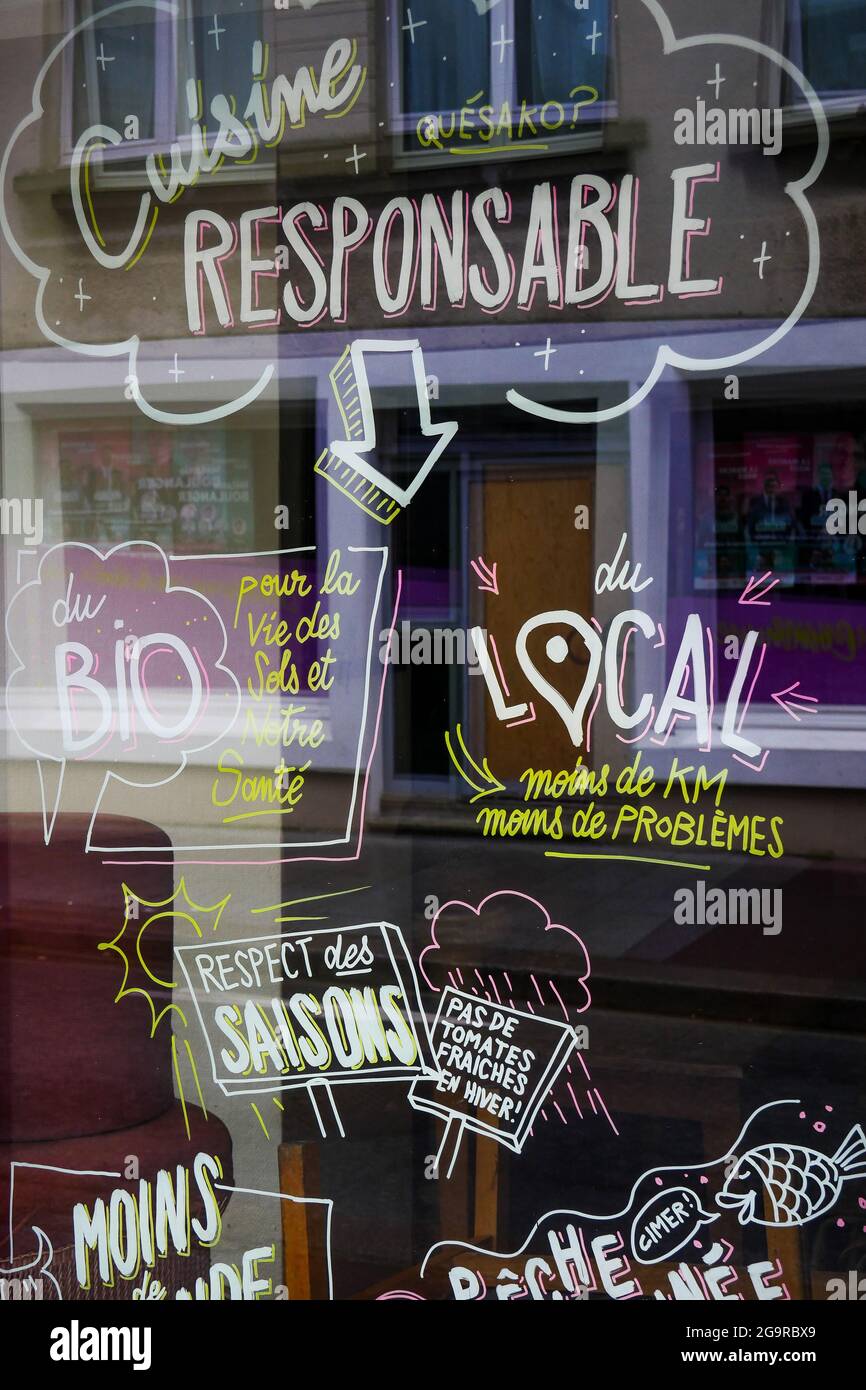 Cuisine
QUÉSAKO?
RESPONSABLE
du
BIO
pour la
Vie des
Sols et
Notre
Santé
du
LOCAL
moins de KM
moins de PROBLÈMES
RESPECT des
SAISONS
PAS DE
TOMATES
FRAICHES
EN HIVER!
MOINS
de
CIMER!
PÊCHE
alamy
alamy
Image ID: 2G9RBX9
www.alamy.com